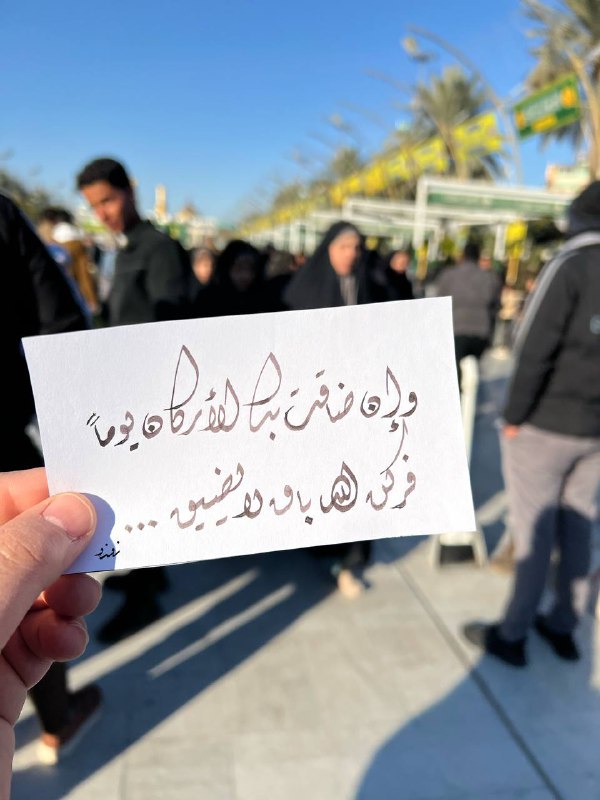 وإن ضاقت بنا الأركان يوماً
فركن الله باقٍ لا يضيق ...